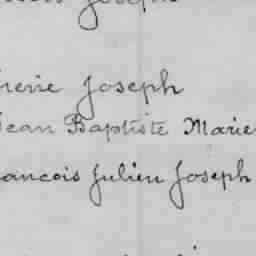 Joseph
Pierre Joseph
Jean Baptiste Marie
François Julien Joseph